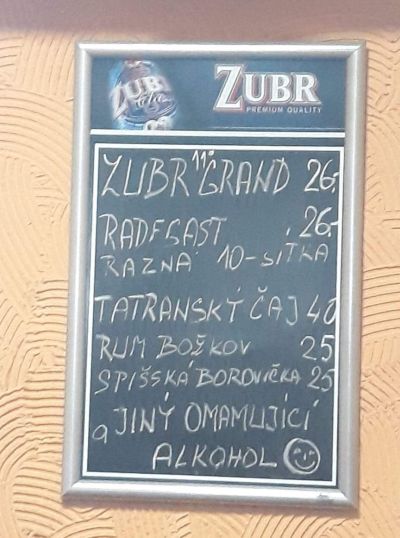 ZUBR
ZUBR
PREMIUM QUALITY
ZUBR 11° GRAND 26,-
RADEGAST 26,-
RAZNÁ 10-SÍTKA
TATRANSKÝ ČAJ 40
RUM BOŽKOV 25
SPIŠSKÁ BOROVIČKA 25
a JINÝ OMAMUJÍCÍ
ALKOHOL